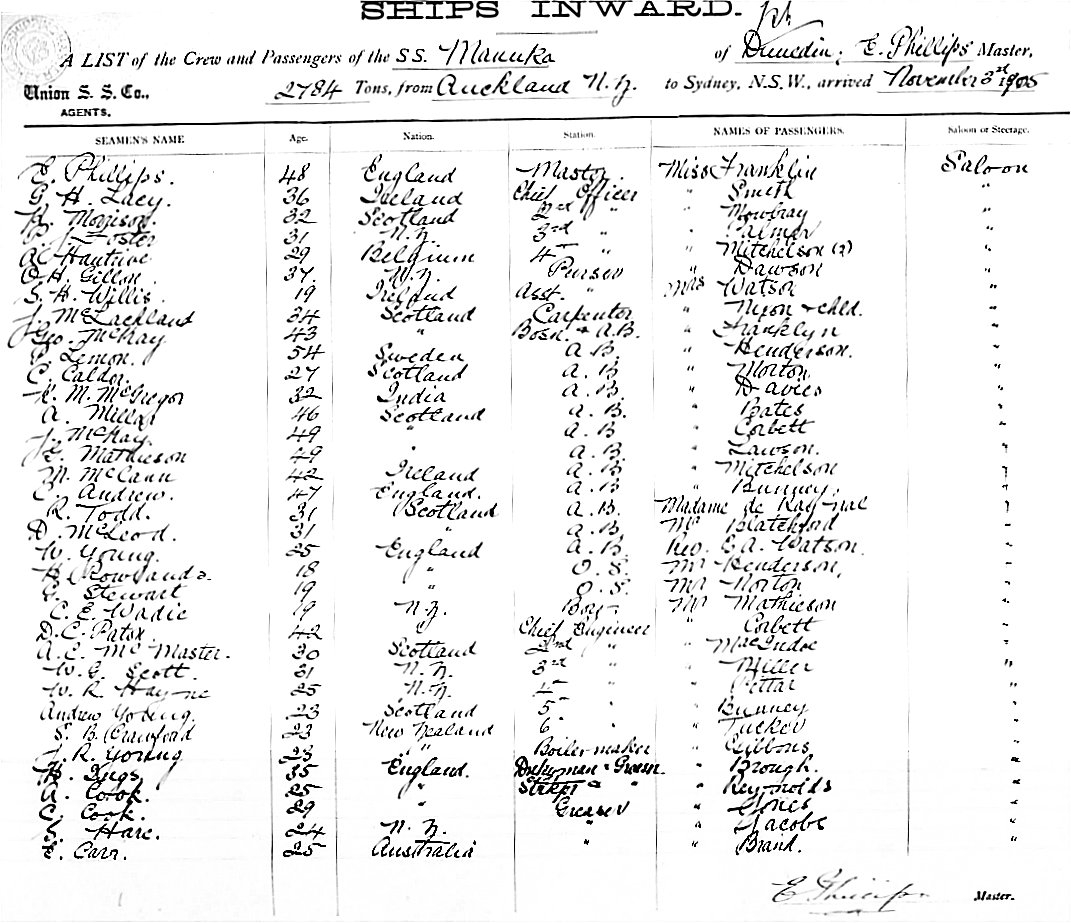 SHIPS INWARD.
A LIST of the Crew and Passengers of the S.S. Manuka of Dunedin, E. Phillips Master,
Union S. S. Co., AGENTS. 2784 Tons, from Auckland N.Z. to Sydney, N.S.W., arrived November 3rd 1905
SEAMEN'S NAME Age. Nation. Station. NAMES OF PASSENGERS. Saloon or Steerage.
E. Phillips. 48 England Master Miss Franklin Saloon
G. H. Lacy. 36 Ireland Chief Officer " Smith "
Morrison. 32 Scotland 2nd " " Mowbray "
Foster 31 N.Z. 3rd " " Palmer "
Hautrive 29 Belgium 4 " " Mitchelson (2) "
C. H. Gillon. 37 N.Z. Purser " Dawson "
S. H. Willis. 19 Ireland Asst. " Mrs Watson "
J. McLachland 34 Scotland Carpenter " Nixon + chld. "
Geo. McKay 43 " Bosn. + A.B. " Franklyn "
P. Lemon. 54 Sweden A.B. " Henderson. "
C. Calder. 27 Scotland A.B. " Morton "
K. M. McGregor 32 India A.B. " Davies "
A. Miller 46 Scotland A.B. " Bates "
J. McKay. 49 " A.B. " Corbett "
Mathieson 49 " A.B. " Lawson. "
M. McCann 42 Ireland A.B. " Mitchelson "
C. Andrew. 47 England. A.B. " Bunney. "
R. Todd. 31 Scotland A.B. Madame de Raynal "
D. McLeod. 31 " A.B. Mr Blatchford "
W. Young. 25 England A.B. Rev. E. A. Watson. "
H. Rowlands. 18 " O.S. Mr Henderson, "
G. Stewart 19 " O.S. Mr Norton "
C. E. Wadie 19 N.Z. Boy Mr Mathieson "
D. C. Paton. 42 " Chief Engineer " Corbett "
A. C. McMaster. 30 Scotland 2nd " " MacIndoe "
W. G. Scott. 31 N.Z. 3rd " " Miller "
W. R. Hayne 25 N.Z. 4 " " Pettar "
Andrew Young. 23 Scotland 5 " " Bunney "
S. B. Crawford 23 New Zealand 6 " " Tucker "
J. R. Young 23 " Boilermaker " Gibbons "
H. Ings 35 England. Dnkyman + Greaser " Brough. "
A. Cook. 25 " " " " Reynolds "
C. Cook. 29 " Greaser " Jones "
S. Hare. 24 N.Z. " " Jacobs "
E. Carr. 25 Australia " " Braid. "
E Phillips Master.